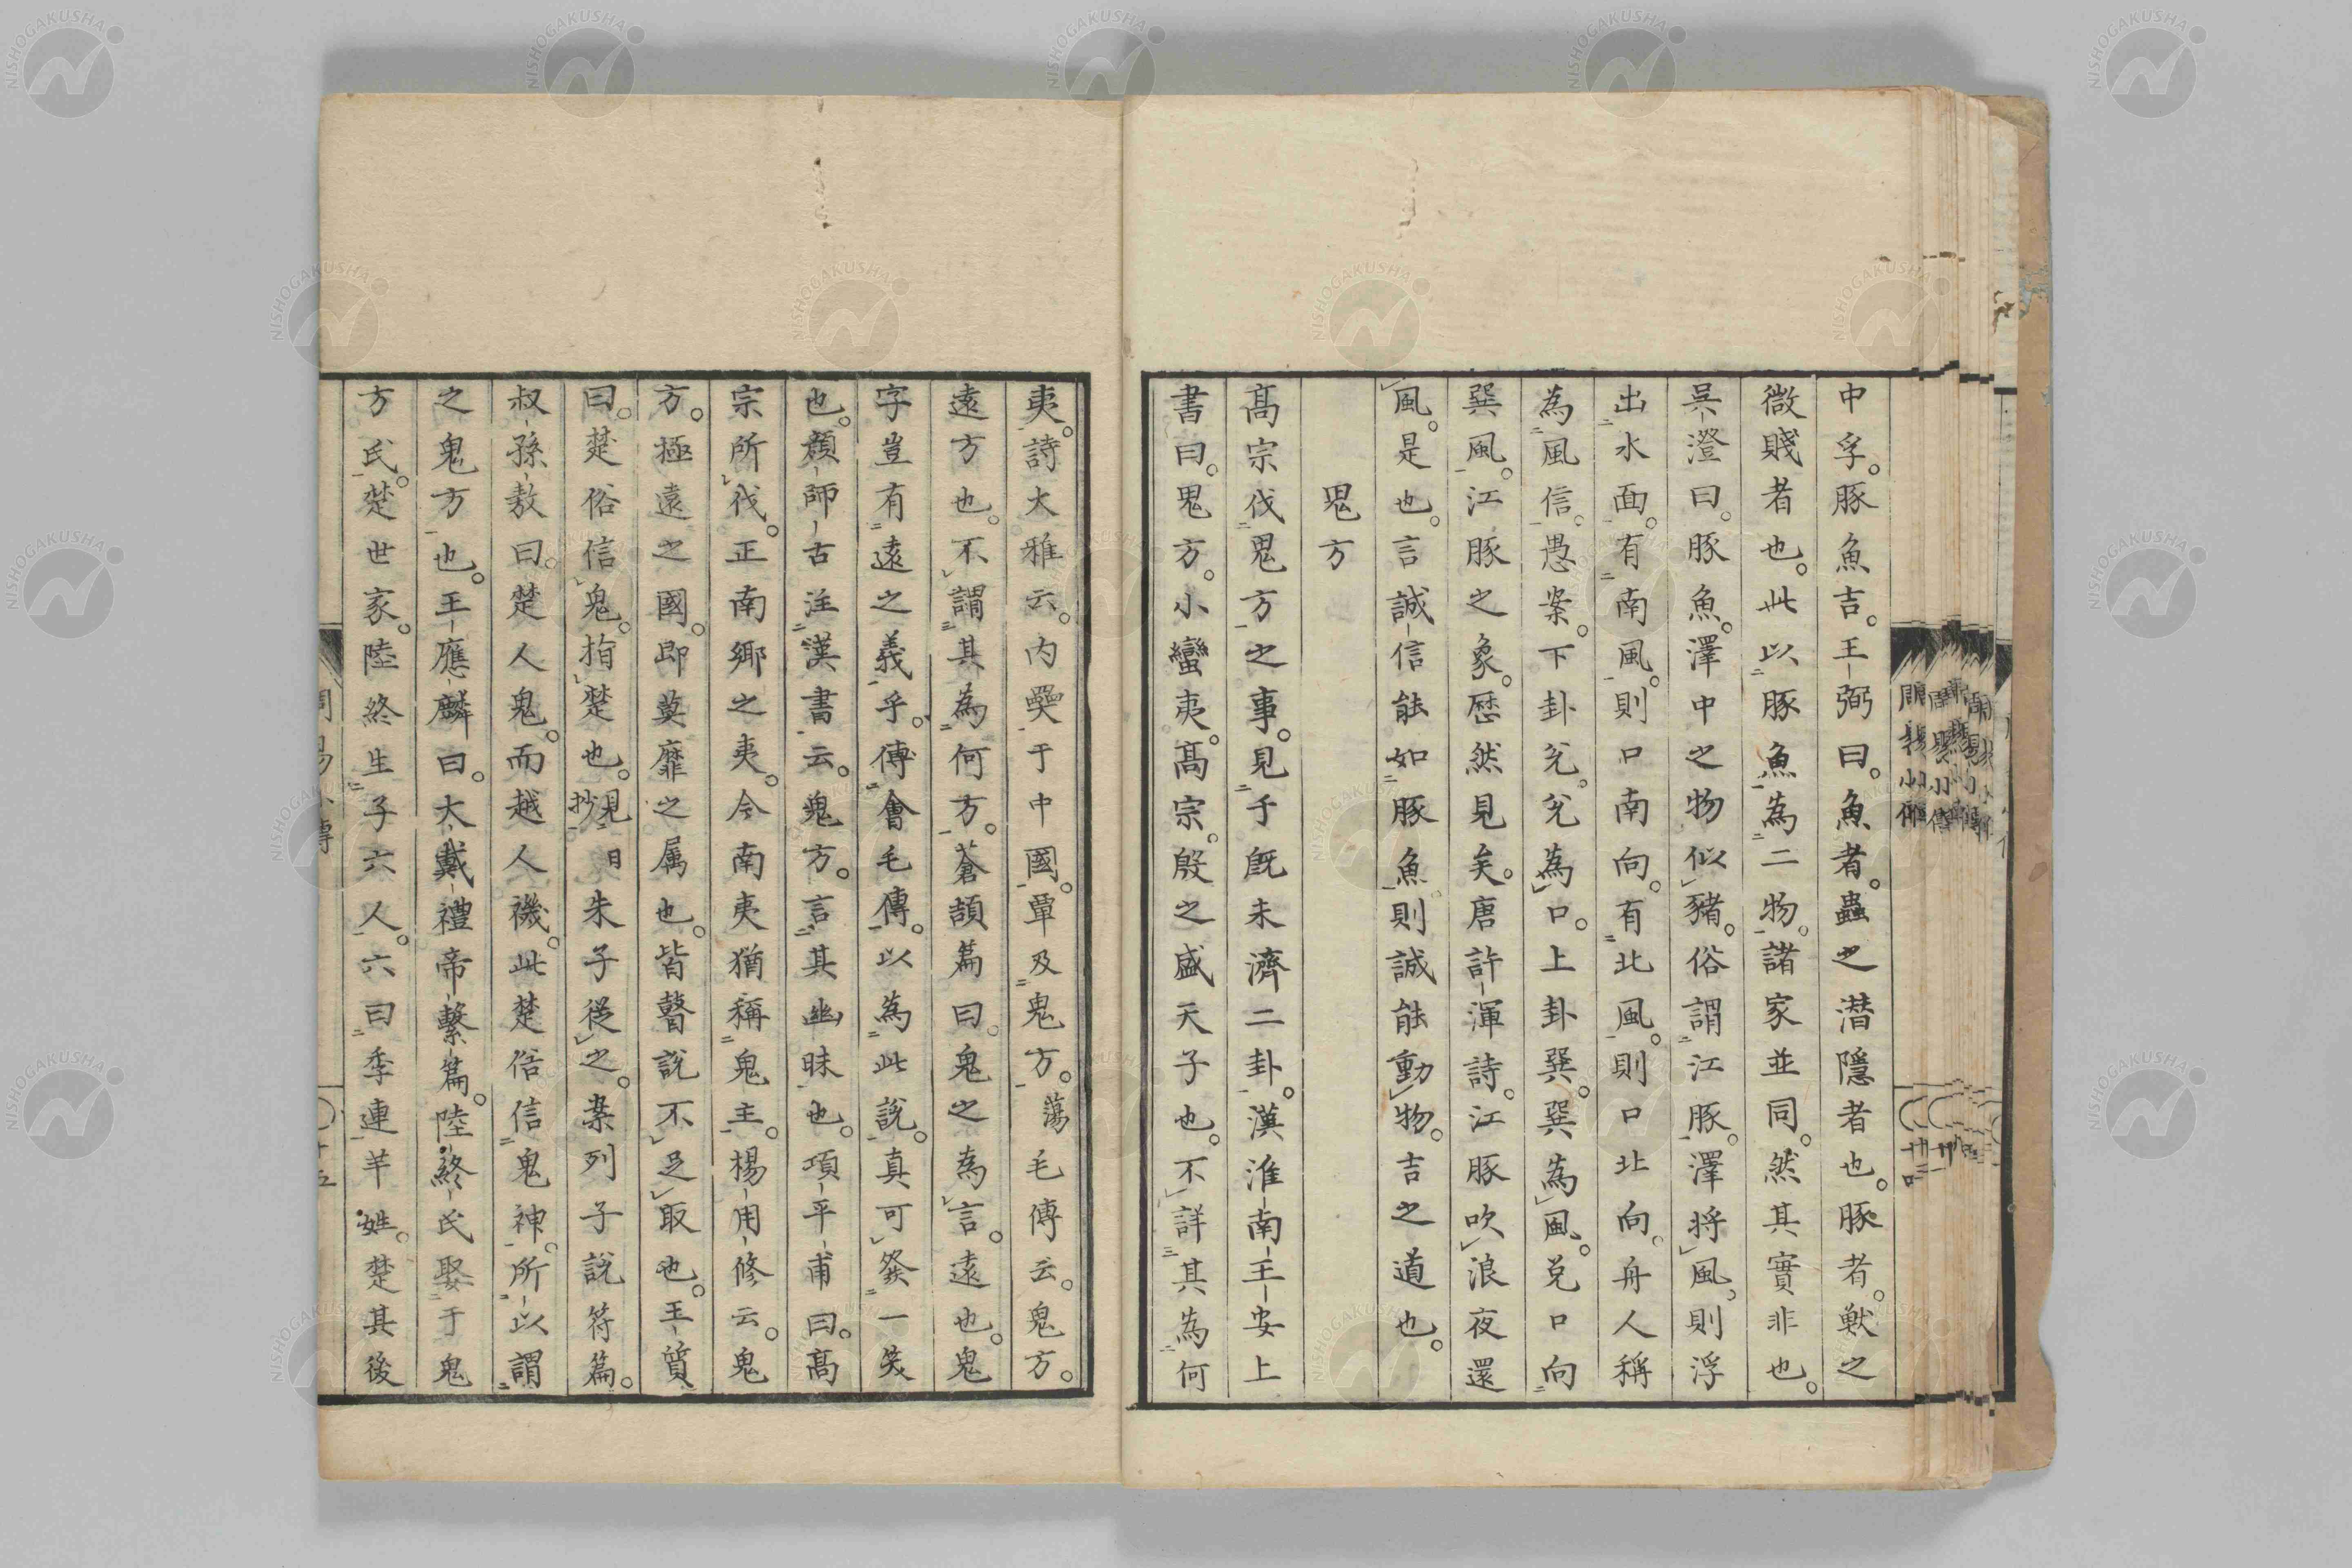 中孚。豚魚吉。王弼曰。魚者。蟲之潛隱者也。豚者。獸之
微賤者也。此以豚魚為二物。諸家並同。然其實非也。
吳澄曰。豚魚。澤中之物似豬。俗謂江豚。澤將風。則浮
出水面。有南風。則口南向。有北風。則口北向。舟人稱
為風信。愚案。下卦兌。兌為口。上卦巽。巽為風。兌口向
巽風。江豚之象。歷然見矣。唐許渾詩。江豚吹浪夜還
風。是也。言誠信能如豚魚則誠能動物。吉之道也。
鬼方
高宗伐鬼方之事。見于既未濟二卦。漢淮南王安上
書曰。鬼方。小蠻夷。高宗。殷之盛天子也。不詳其為何
夷。詩大雅云。内奰于中國。覃及鬼方。蕩毛傳云。鬼方。
遠方也。不謂其為何方。蒼頡篇曰。鬼之為言。遠也。鬼
字豈有遠之義乎。傅會毛傳。以為此說。真可發一笑
也。顔師古注漢書云。鬼方。言其幽昧也。項平甫曰。高
宗所伐。正南鄉之夷。今南夷猶稱鬼主。楊用修云。鬼
方。極遠之國。即莫靡之属也。皆瞽說不足取也。王質
曰。楚俗信鬼。指楚也。見日抄朱子從之。案列子說符篇。
叔孫敖曰。楚人鬼。而越人禨。此楚俗信鬼神。所以謂
之鬼方也。王應麟曰。大戴禮帝繫篇。陸終氏娶于鬼
方氏。楚世家。陸終生子六人。六曰季連。芈姓。楚其後
周易小傳
十五
NISHOGAKUSHA